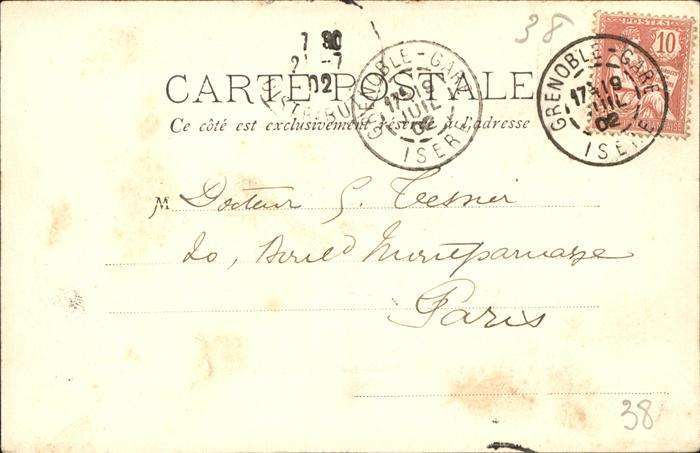 38
POSTES
10
7 30
2 -7
02
DISTRIBUTION
GRENOBLE-GARE
17 19
JUIL
02
ISERE
GRENOBLE-GARE
17 19
JUIL
02
ISERE
CARTE POSTALE
Ce côté est exclusivement réservé à l'adresse
M Docteur G. Tesnier
20, Boul^d Montparnasse
Paris
38